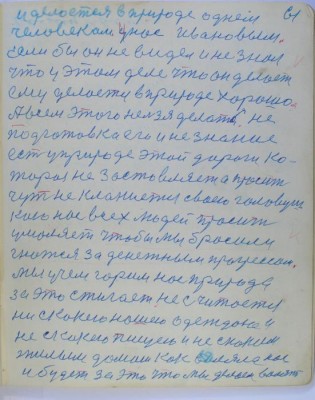 и делается в природе одним 61
человеком у нас Ивановым.
если бы он не видел и не знал
что у этом деле что он делает
ему делается в природе хорошо.
А всем этого нельзя делать. не
подготовка его и не знание
есть у природе этой дороги ко-
торая не заставляет а просит
чуть не кланиется своею головушк
кою нас всех людей просить
умоляет чтобы мы бросили
гнатся за денежным процессом.
мы у чем горим нас природа
за это стигает не считается
ни с какою нашею одеждою и
не с какою пищею и не с каким
жилым домом как
и будет за это что мы делаем